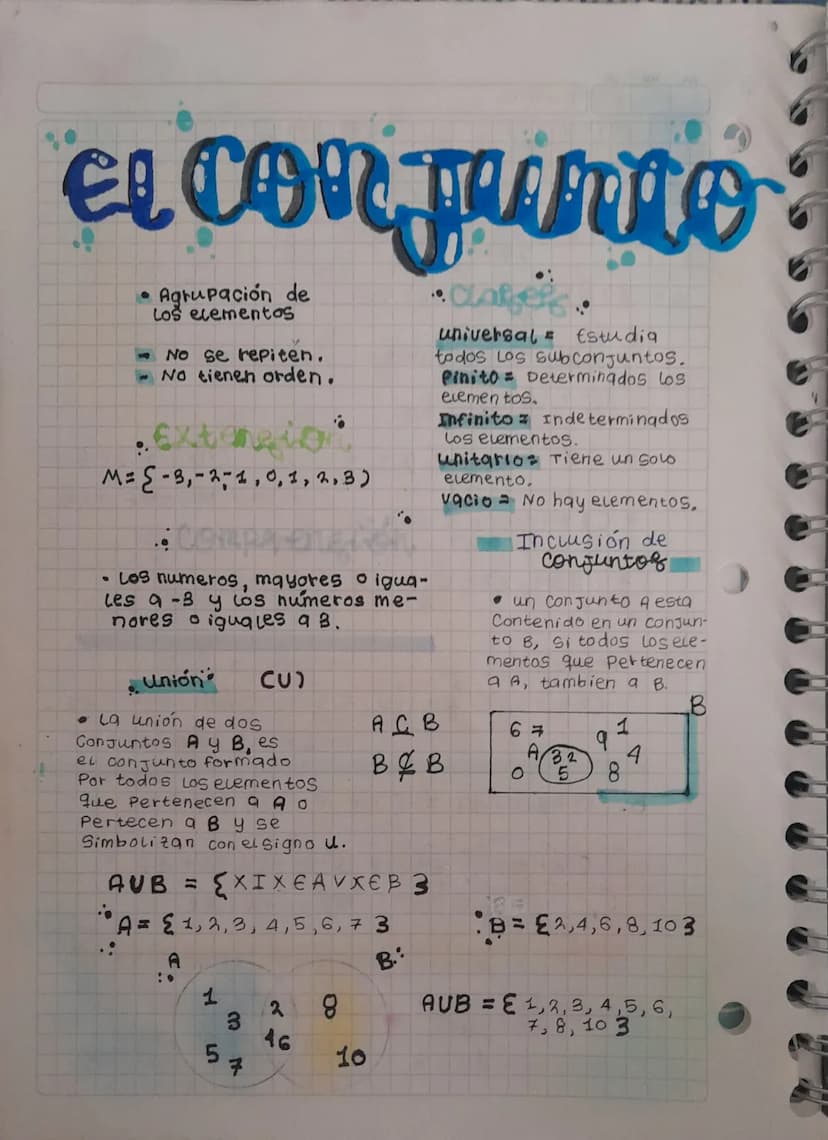 El Conjunto
• Agrupación de
los elementos
- No se repiten.
- No tienen orden.
Extension
M={-3,-2,-1,0,1,2,3)
Comprensión
• Los numeros, mayores o igua-
les a -3 y los números me-
nores o iguales a 3.
Clases
universal= Estudia
todos los subconjuntos.
Finito= Determinados los
elementos.
Infinito= Indeterminados
los elementos.
unitario= Tiene un solo
elemento.
vacio= No hay elementos.
Inclusión de
conjuntos
• un conjunto A esta
Contenido en un conjun-
to B, si todos los ele-
mentos que pertenecen
a A, tambien a B.
Unión (U)
• La unión de dos
Conjuntos A y B, es
el conjunto formado
Por todos los elementos
que pertenecen a A o
Pertecen a B y se
Simbolizan con el signo U.
A ⊆ B
B ⊄ B
B
6 7 9 1
A 3 2 4
0 5 8
AUB = {X I X ∈ A V X ∈ B }
A= {1,2,3,4,5,6,7 }
B= {2,4,6,8,10}
A B
1 2 8
3
5 7 46 10
AUB = {1,2,3,4,5,6,
7,8,10 }